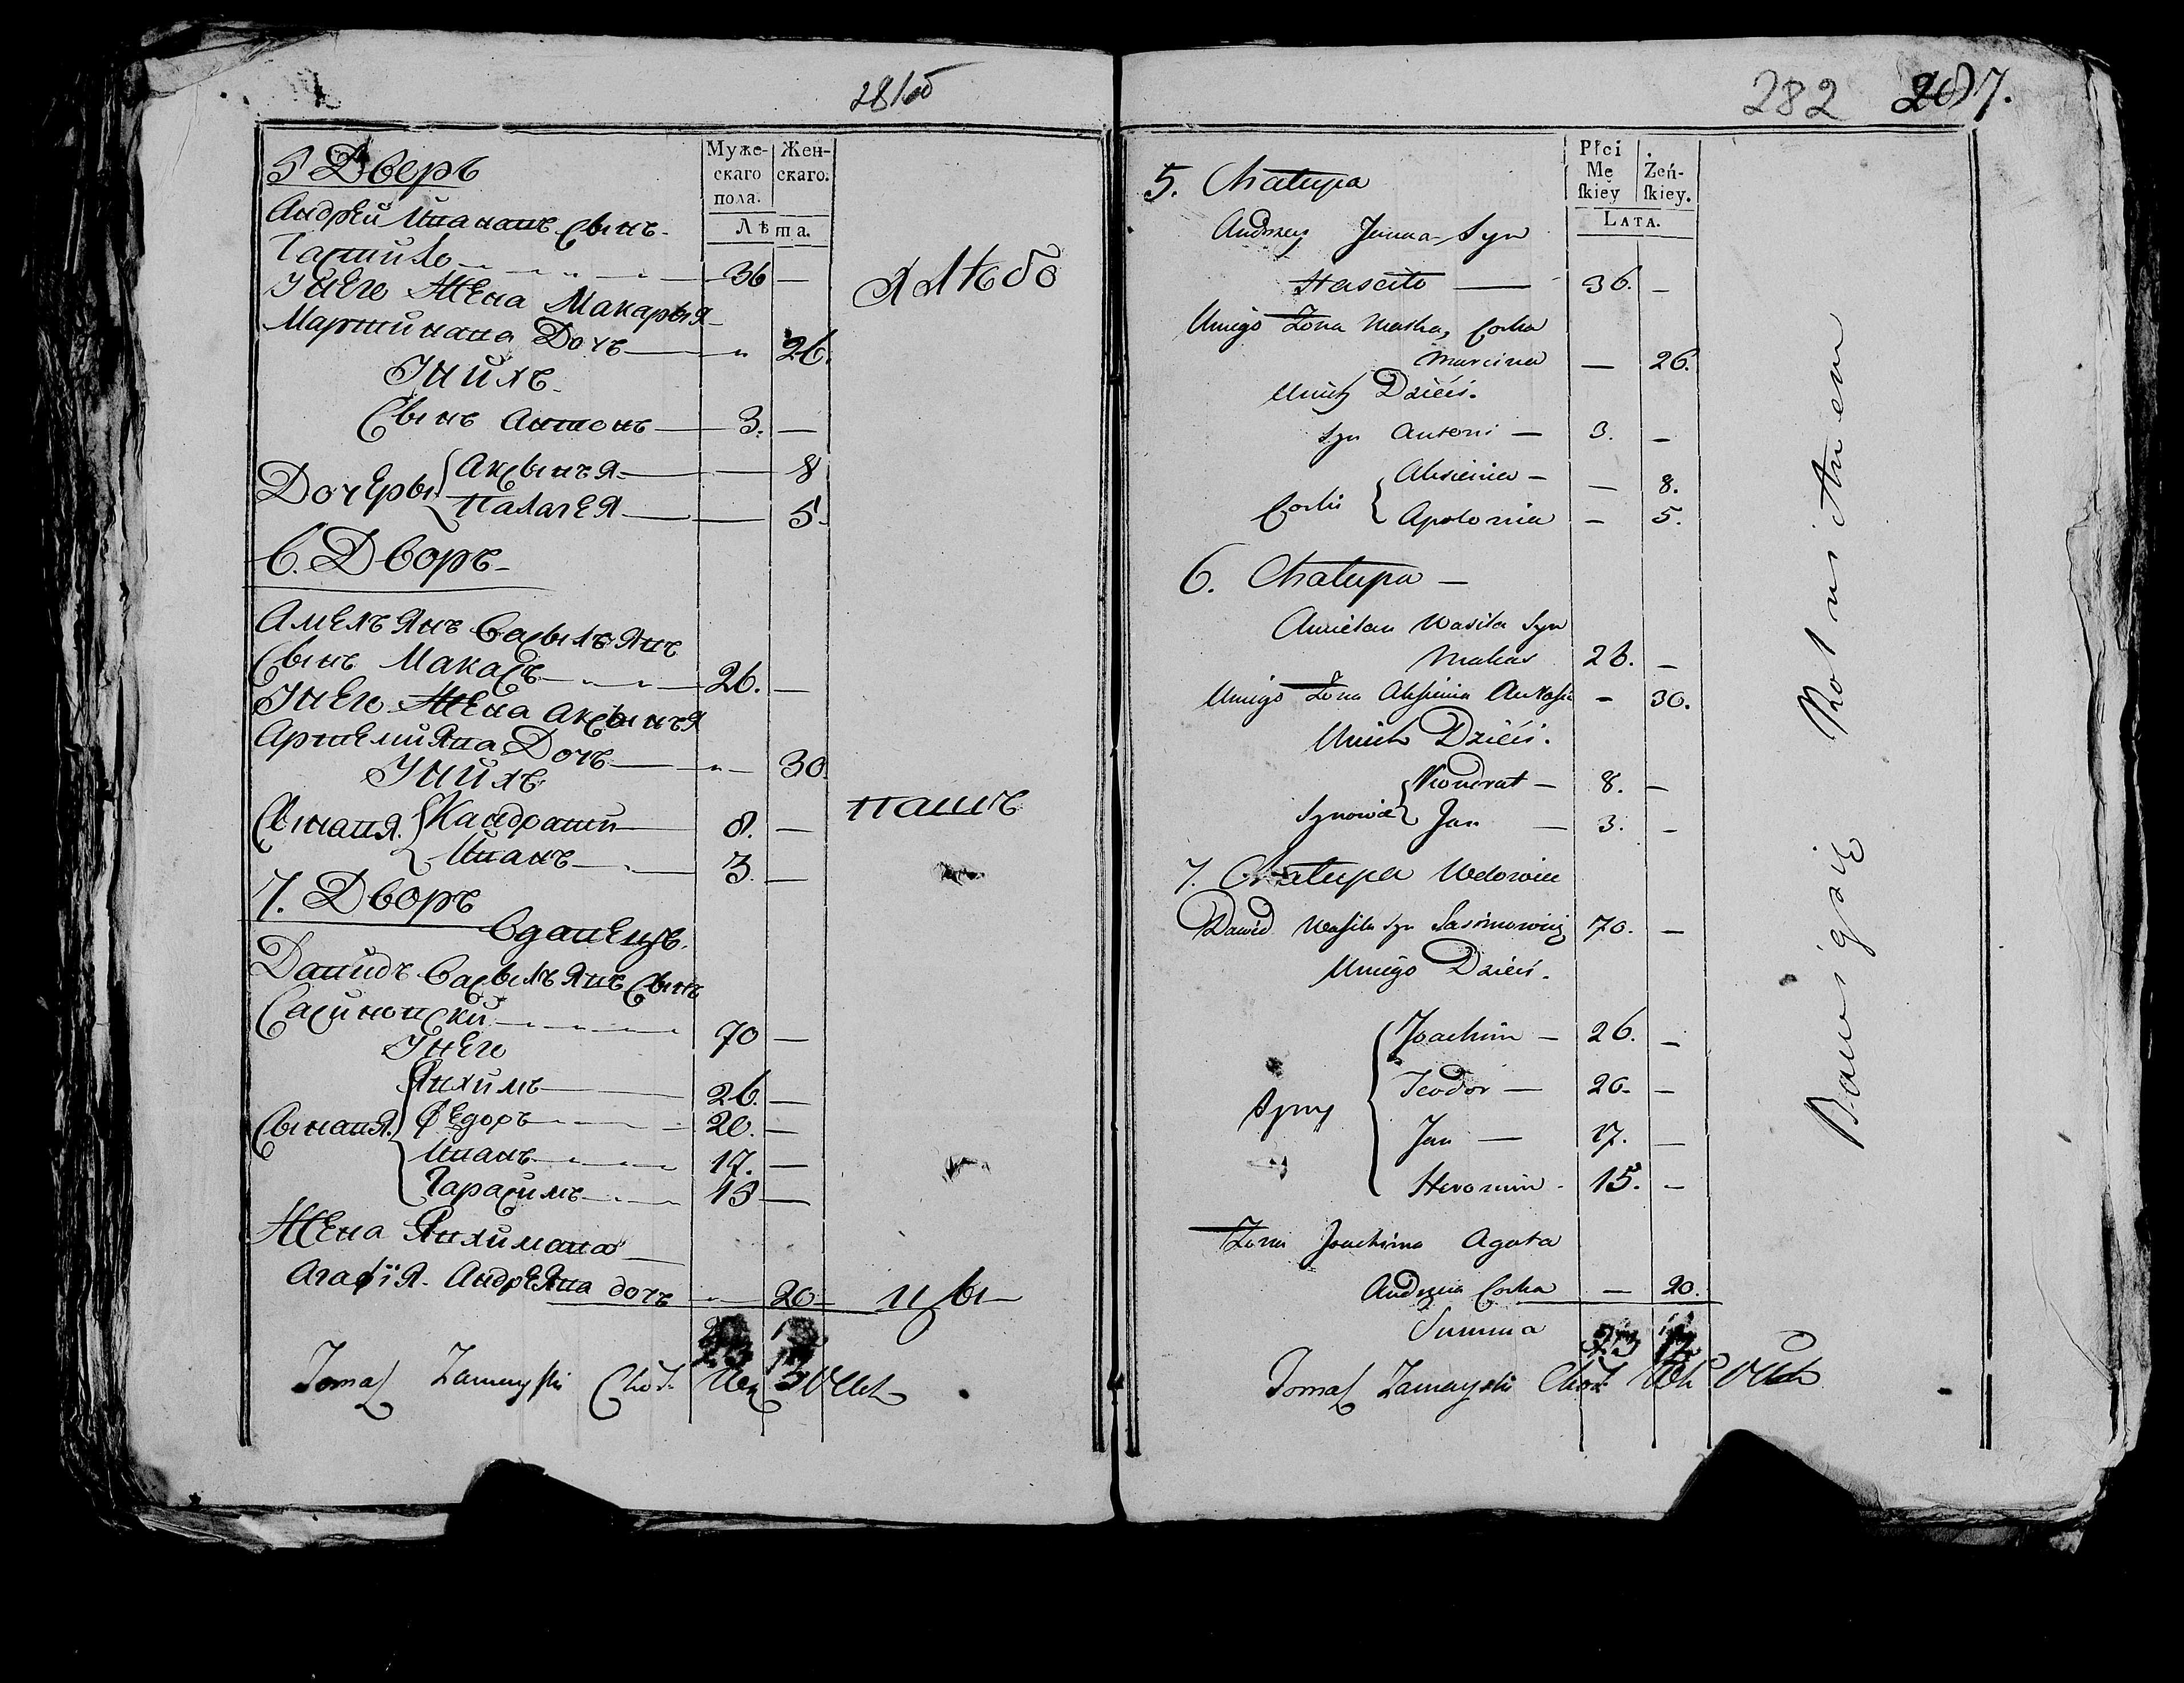 281об
5 Дверъ
Муже-
скаго
пола.
Жен-
скаго.
Лѣта.
Андрей Иванавъ Сынъ
Гасцило 36 —
У Него Жена Макарыя
Мартинава Дочь — 26.
У Нихъ
Сынъ Антонъ — 3. —
Дочеры { Аксынья — 8
Палагея — 5.
6. Дворъ
Амельянъ Васыльявъ
Сынъ Макасъ 26. —
У Него Жена Аксынья
Артемиява Дочь — 30.
У Нихъ
Сынавя { Кандратъ 8. —
Иванъ 3. —
7. Дворъ
Вдавецъ.
Давидъ Васыльявъ Сынъ
Сасиновски 70 —
У Него
Сынавя { Яахимъ 26. —
Федоръ 20. —
Иванъ 17. —
Гарасимъ 15 —
Жена Яахимава
Агафія Андреява дочь — 20
Ялѣбо
пашъ
цы
Tomasz Zamayski
282 287.
5. Chałupa
Płci
Mę
skiey
Żeń-
skiey.
Lata.
Andrzey Jwana Syn
Hascito — 36. —
U niego Żona Maska, Corka
Marcina — 26.
U nich Dzieci.
Syn Antoni — 3. —
Corki { Aksienia — — 8.
Apolonia — 5.
6. Chałupa —
Amielan Wasila Syn
Makas 26. —
U niego Żona Aksinia — 30.
U nich Dzieci.
Synowie { Kondrat — 8. —
Jan — 3. —
7. Chałupa Wdowiec
Dawid Wasila Syn Sasinowicz 70. —
U niego Dzieci.
Syny { Joachim — 26. —
Teodor — 20. —
Jan — 17. —
Heronim 15. —
Żona Joachima Agata
Andrzeia Corka — 20.
Summa
Tomasz Zamayski